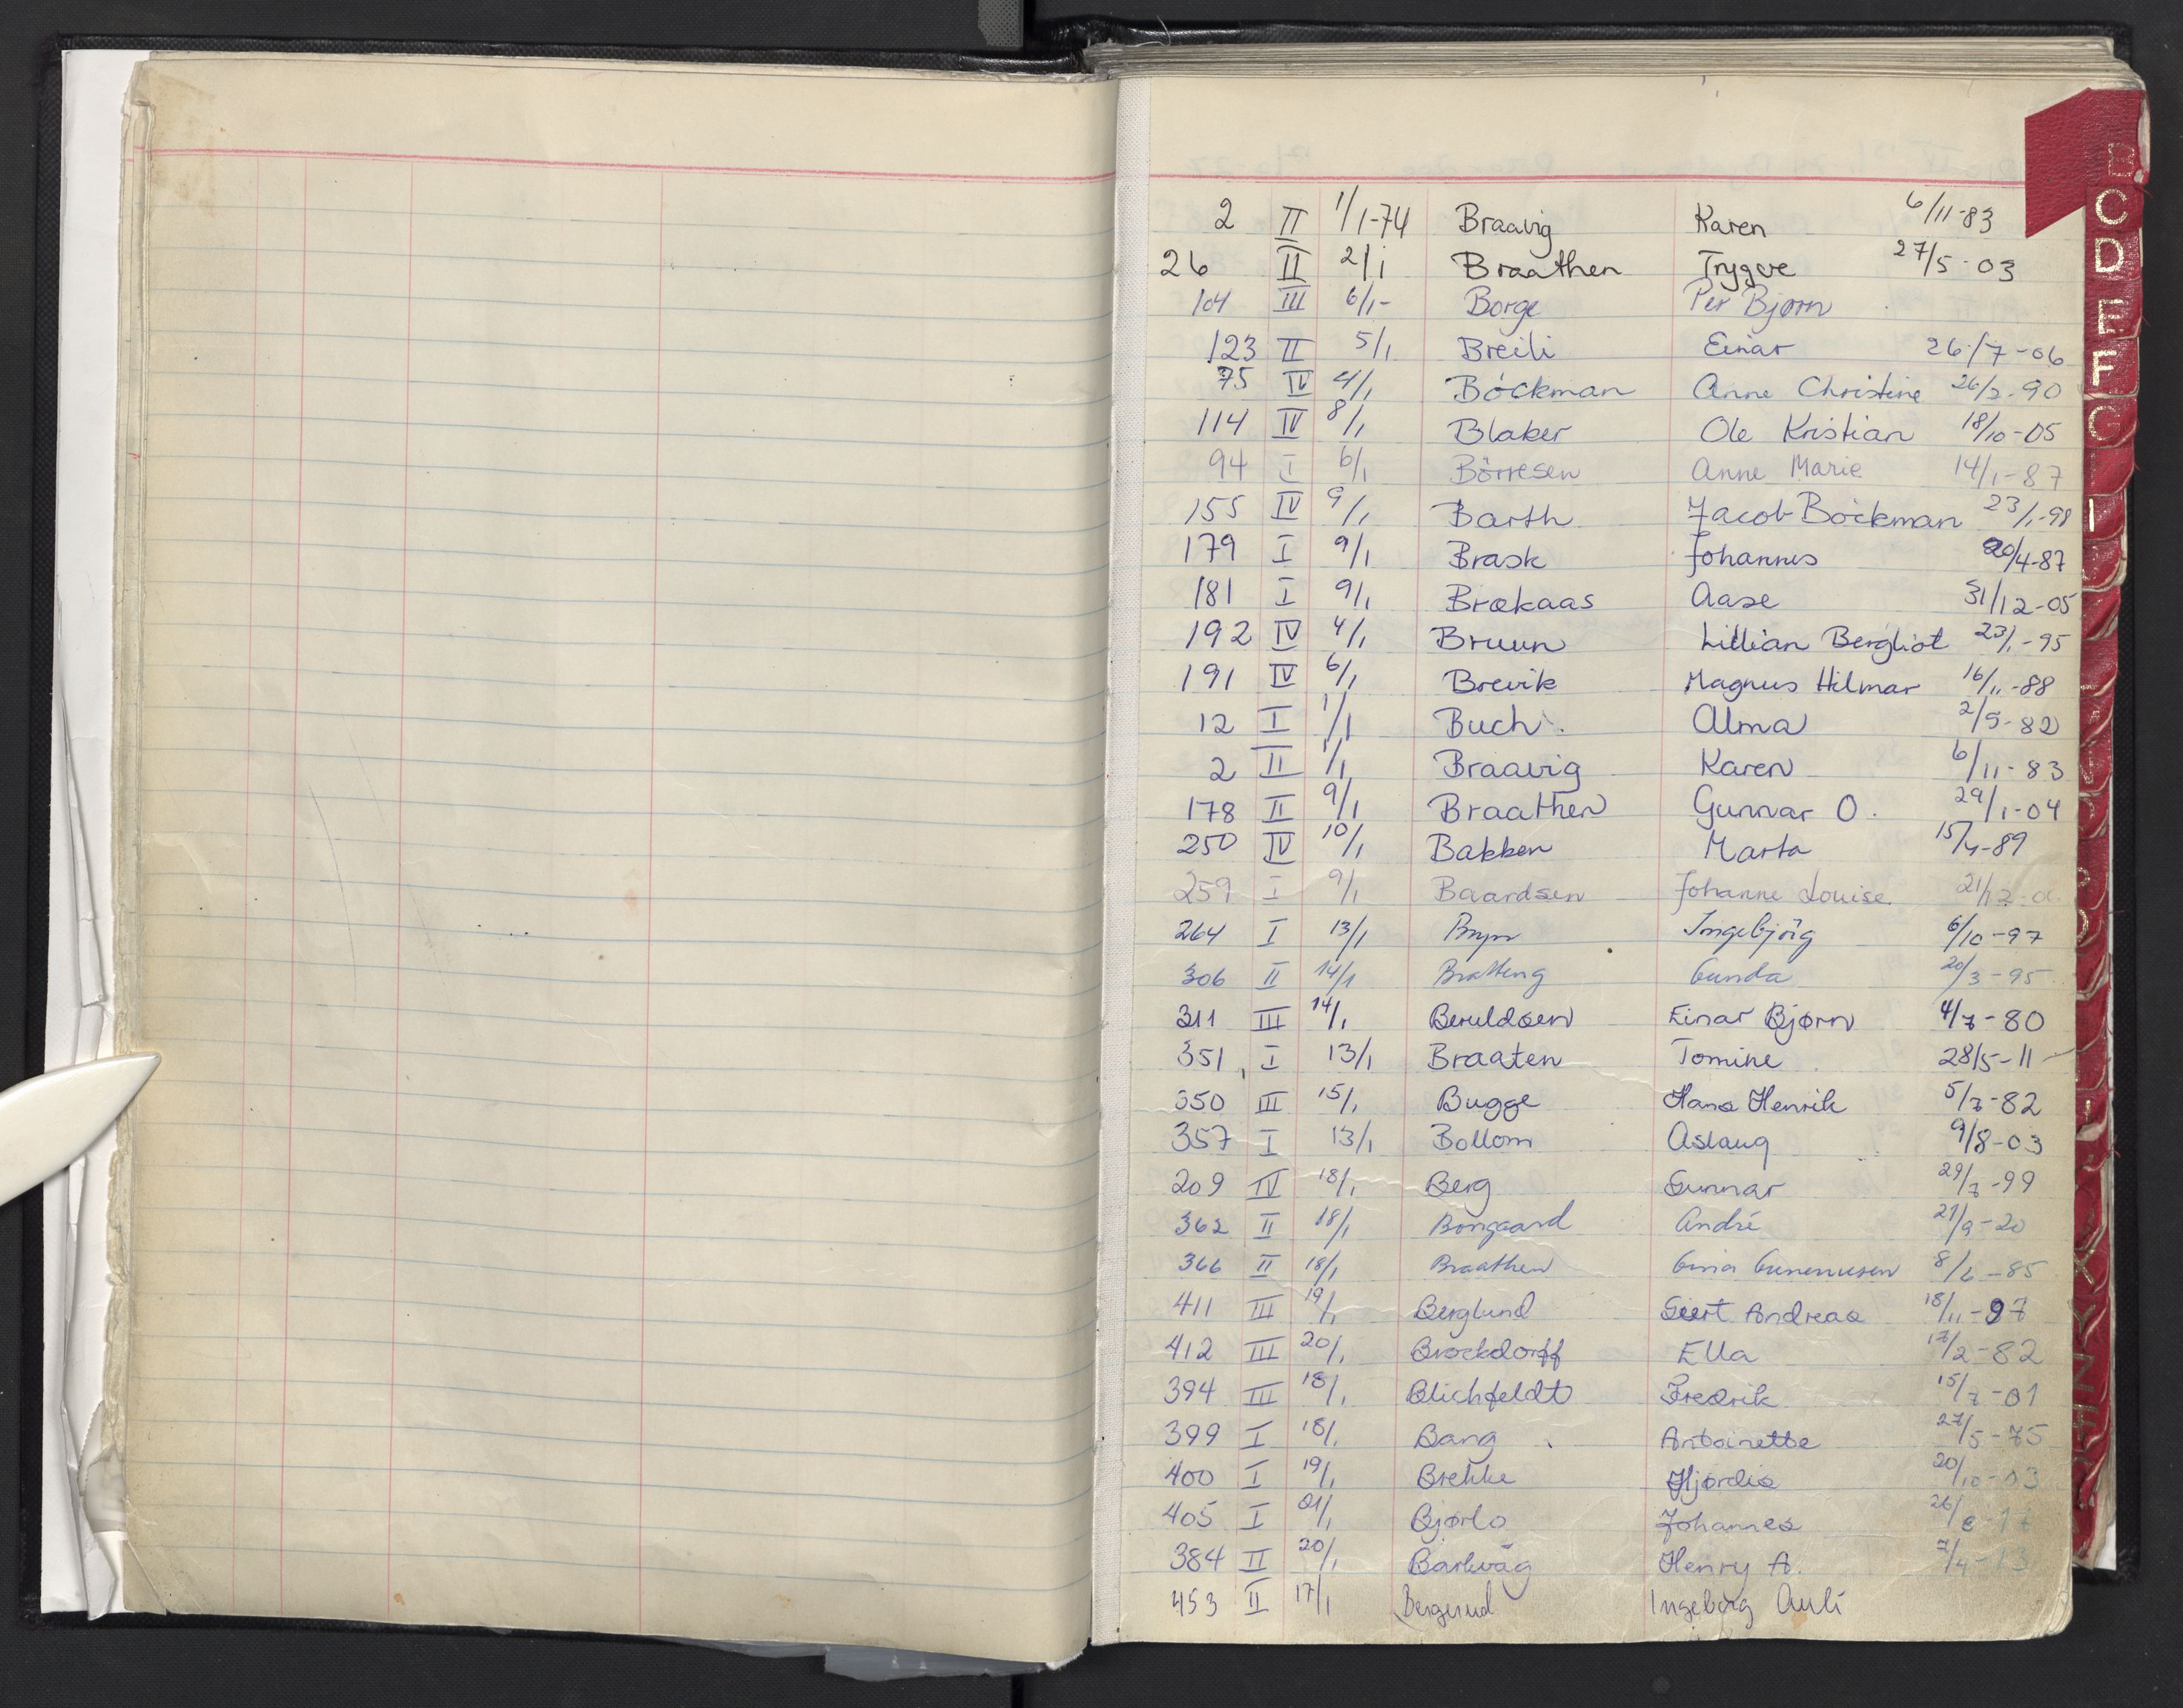 2 II 1/1-74 Braavig Karen 6/11-83
26 II 2/1 Braathen Trygve 27/5-03
104 III 6/1- Borge Per Bjørn
123 II 5/1 Breili Einar 26/7-06
75 IV 4/1 Böckman Anne Christine 26/2-90
114 IV 8/1 Blaker Ole Kristian 18/10-05
94 I 6/1 Börresen Anne Marie 14/1-87
155 IV 9/1 Barth Jacob Böckman 23/1-98
179 I 9/1 Brask Johannes 20/4-87
181 I 9/1 Brækaas Aase 31/12-05
192 IV 4/1 Bruun Lillian Bergliot 23/1-95
191 IV 6/1 Brevik Magnus Hilmar 16/11-88
12 I 1/1 Buch Alma 2/5-82
2 II 1/1 Braavig Karen 6/11-83
178 II 9/1 Braathen Gunnar O. 29/1-04
250 IV 10/1 Bakken Marta 15/4-89
259 I 9/1 Baardsen Johanne Louise 21/12
264 I 13/1 Bryn Ingebjörg 6/10-97
306 II 14/1 Bratteng Gunda 20/3-95
311 III 14/1 Beruldsen Einar Bjørn 4/7-80
351 I 13/1 Braaten Tomine 28/5-11
350 III 15/1 Bugge Hans Henrik 5/7-82
357 I 13/1 Bollom Aslaug 9/8-03
209 IV 18/1 Berg Gunnar 29/7-99
362 II 18/1 Bongaard André 21/9-20
366 II 18/1 Braathen Gina 8/6-85
411 III 19/1 Berglund Geert Andreas 18/11-97
412 III 20/1 Brockdorff Ella 17/2-82
394 III 18/1 Blichfeldt Fredrik 15/7-01
399 I 18/1 Bang Antoinette 27/5-75
400 I 19/1 Brekke Hjørdis 20/10-03
405 I 21/1 Bjørlo Johannes 26/8-17
384 II 20/1 Barkvåg Henry A. 7/4-13
453 II 17/1 Bergerud Ingeborg Auli
B
C
D
E
F
G
I